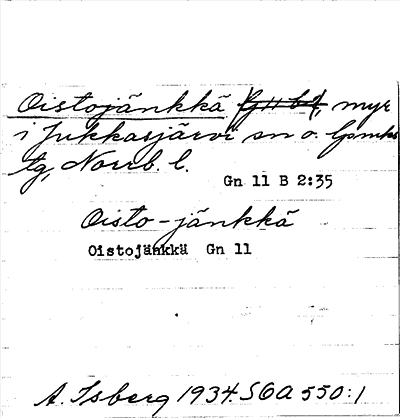 Oistojänkkä (Gn 11 b 2), myr
i Jukkasjärvi sn o. lpmks
tg, Norrb. l.
Gn 11 B 2:35
Oisto-jänkkä
Oistojänkkä Gn 11
A. Isberg 1934. SOA 550:1